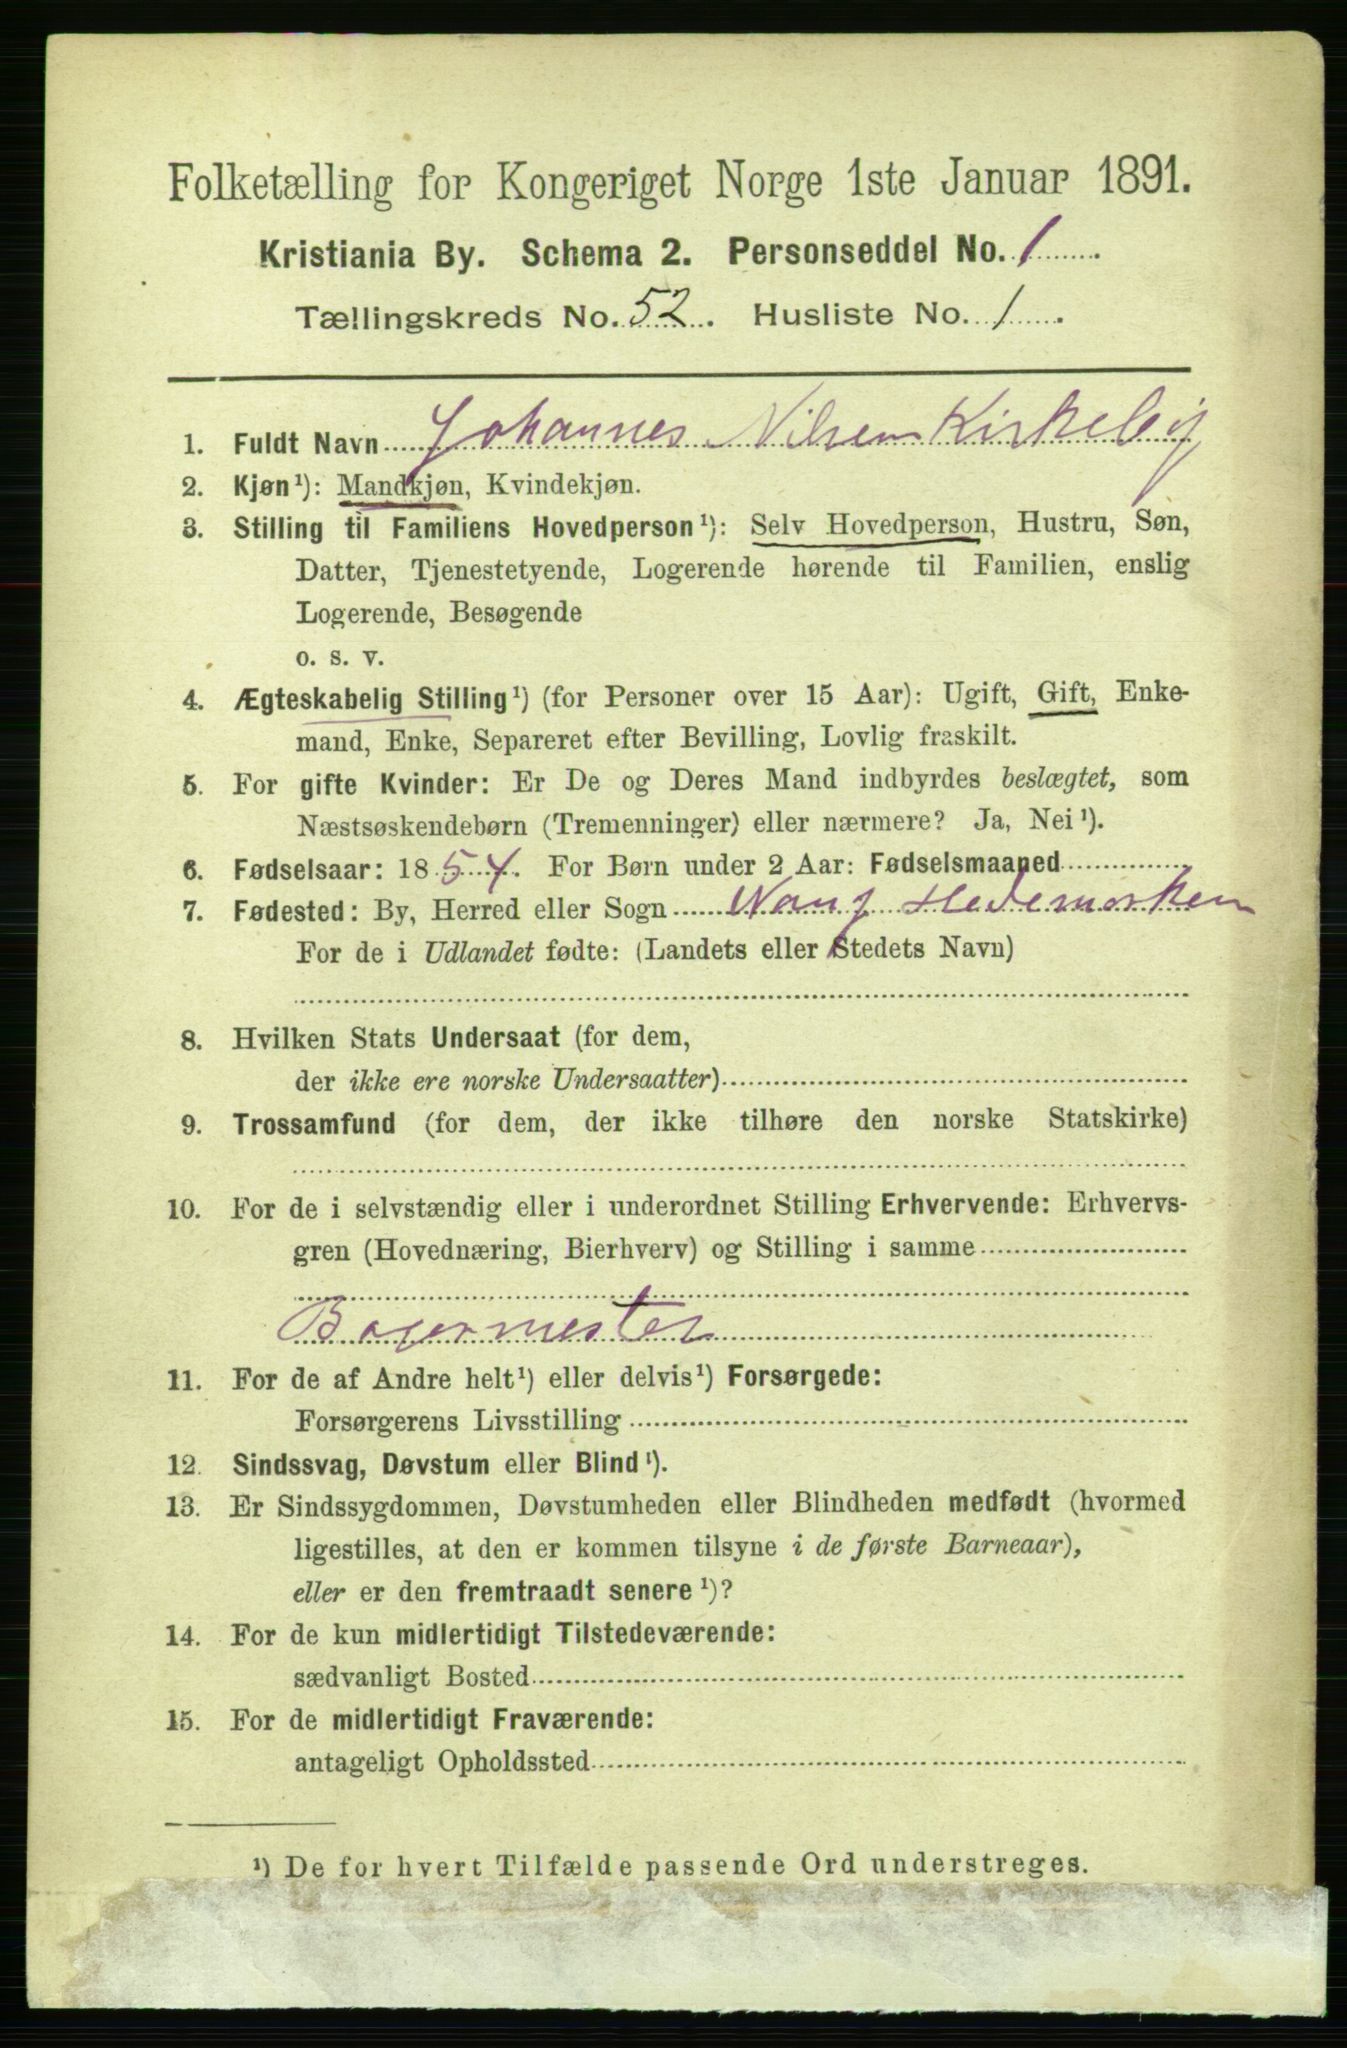 Folketælling for Kongeriget Norge 1ste Januar 1891.
Kristiania By. Schema 2. Personseddel No. 1
Tællingskreds No. 52. Husliste No. 1.
1. Fuldt Navn Johannes Nilsen Kirkeby
2. Kjøn¹): Mandkjøn, Kvindekjøn.
3. Stilling til Familiens Hovedperson¹): Selv Hovedperson, Hustru, Søn,
Datter, Tjenestetyende, Logerende hørende til Familien, enslig
Logerende, Besøgende
o. s. v.
4. Ægteskabelig Stilling¹) (for Personer over 15 Aar): Ugift, Gift, Enke-
mand, Enke, Separeret efter Bevilling, Lovlig fraskilt.
5. For gifte Kvinder: Er De og Deres Mand indbyrdes beslægtet, som
Næstsøskendebørn (Tremenninger) eller nærmere? Ja, Nei¹).
6. Fødselsaar: 1854. For Børn under 2 Aar: Fødselsmaaned
7. Fødested: By, Herred eller Sogn Nang Hedemarken
For de i Udlandet fødte: (Landets eller Stedets Navn)
8. Hvilken Stats Undersaat (for dem,
der ikke ere norske Undersaatter)
9. Trossamfund (for dem, der ikke tilhøre den norske Statskirke)
10. For de i selvstændig eller i underordnet Stilling Erhvervende: Erhvervs-
gren (Hovednæring, Bierhverv) og Stilling i samme
Bagermester
11. For de af Andre helt¹) eller delvis¹) Forsørgede:
Forsørgerens Livsstilling
12. Sindssvag, Døvstum eller Blind¹).
13. Er Sindssygdommen, Døvstumheden eller Blindheden medfødt (hvormed
ligestilles, at den er kommen tilsyne i de første Barneaar),
eller er den fremtraadt senere¹)?
14. For de kun midlertidigt Tilstedeværende:
sædvanligt Bosted
15. For de midlertidigt Fraværende:
antageligt Opholdssted
¹) De for hvert Tilfælde passende Ord understreges.